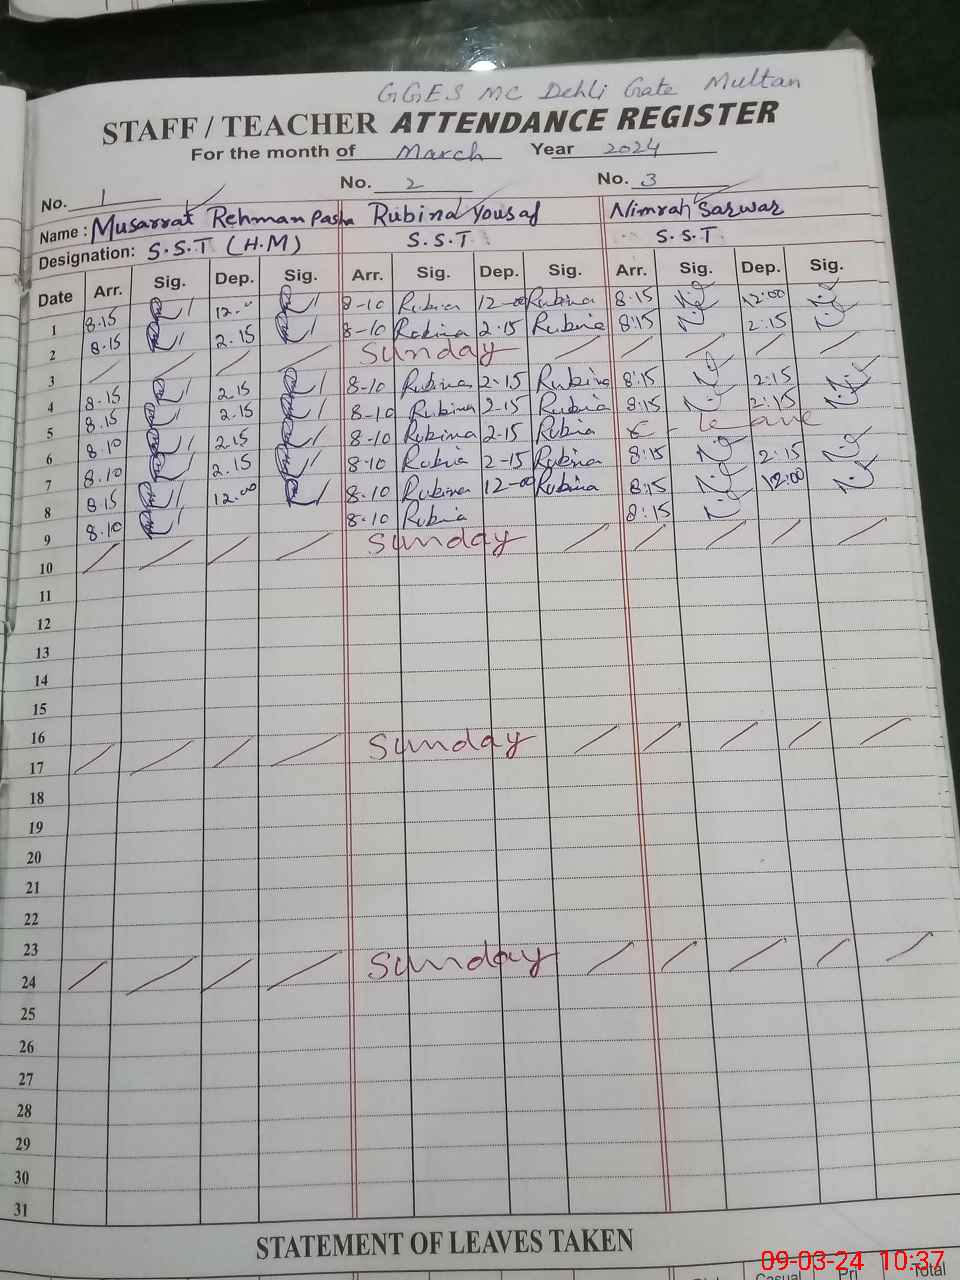 GGES MC Dehli Gate Multan
STAFF / TEACHER ATTENDANCE REGISTER
For the month of March Year 2024
No. 1 No. 2 No. 3
Name: Musarrat Rehman Pasha Rubina Yousaf Nimrah Sarwar
Designation: S.S.T (H.M) S.S.T S.S.T
Date Arr. Sig. Dep. Sig. Arr. Sig. Dep. Sig. Arr. Sig. Dep. Sig.
1 8.15 12.00 8-10 Rubina 12-00 Rubina 8:15 12:00
2 8.15 2.15 8-10 Rubina 2-15 Rubina 8:15 2:15
3 Sunday
4 8.15 2.15 8-10 Rubina 2-15 Rubina 8:15 2:15
5 8.15 2.15 8-10 Rubina 2-15 Rubina 8:15 2:15
6 8.10 2.15 8-10 Rubina 2-15 Rubina leave
7 8.10 2.15 8-10 Rubina 2-15 Rubina 8:15 2:15
8 8.15 12.00 8-10 Rubina 12-00 Rubina 8:15 12:00
9 8.10 8-10 Rubina 8:15
10 Sunday
11
12
13
14
15
16
17 Sunday
18
19
20
21
22
23
24 Sunday
25
26
27
28
29
30
31
STATEMENT OF LEAVES TAKEN
Casual Pri Total
09-03-24 10:37